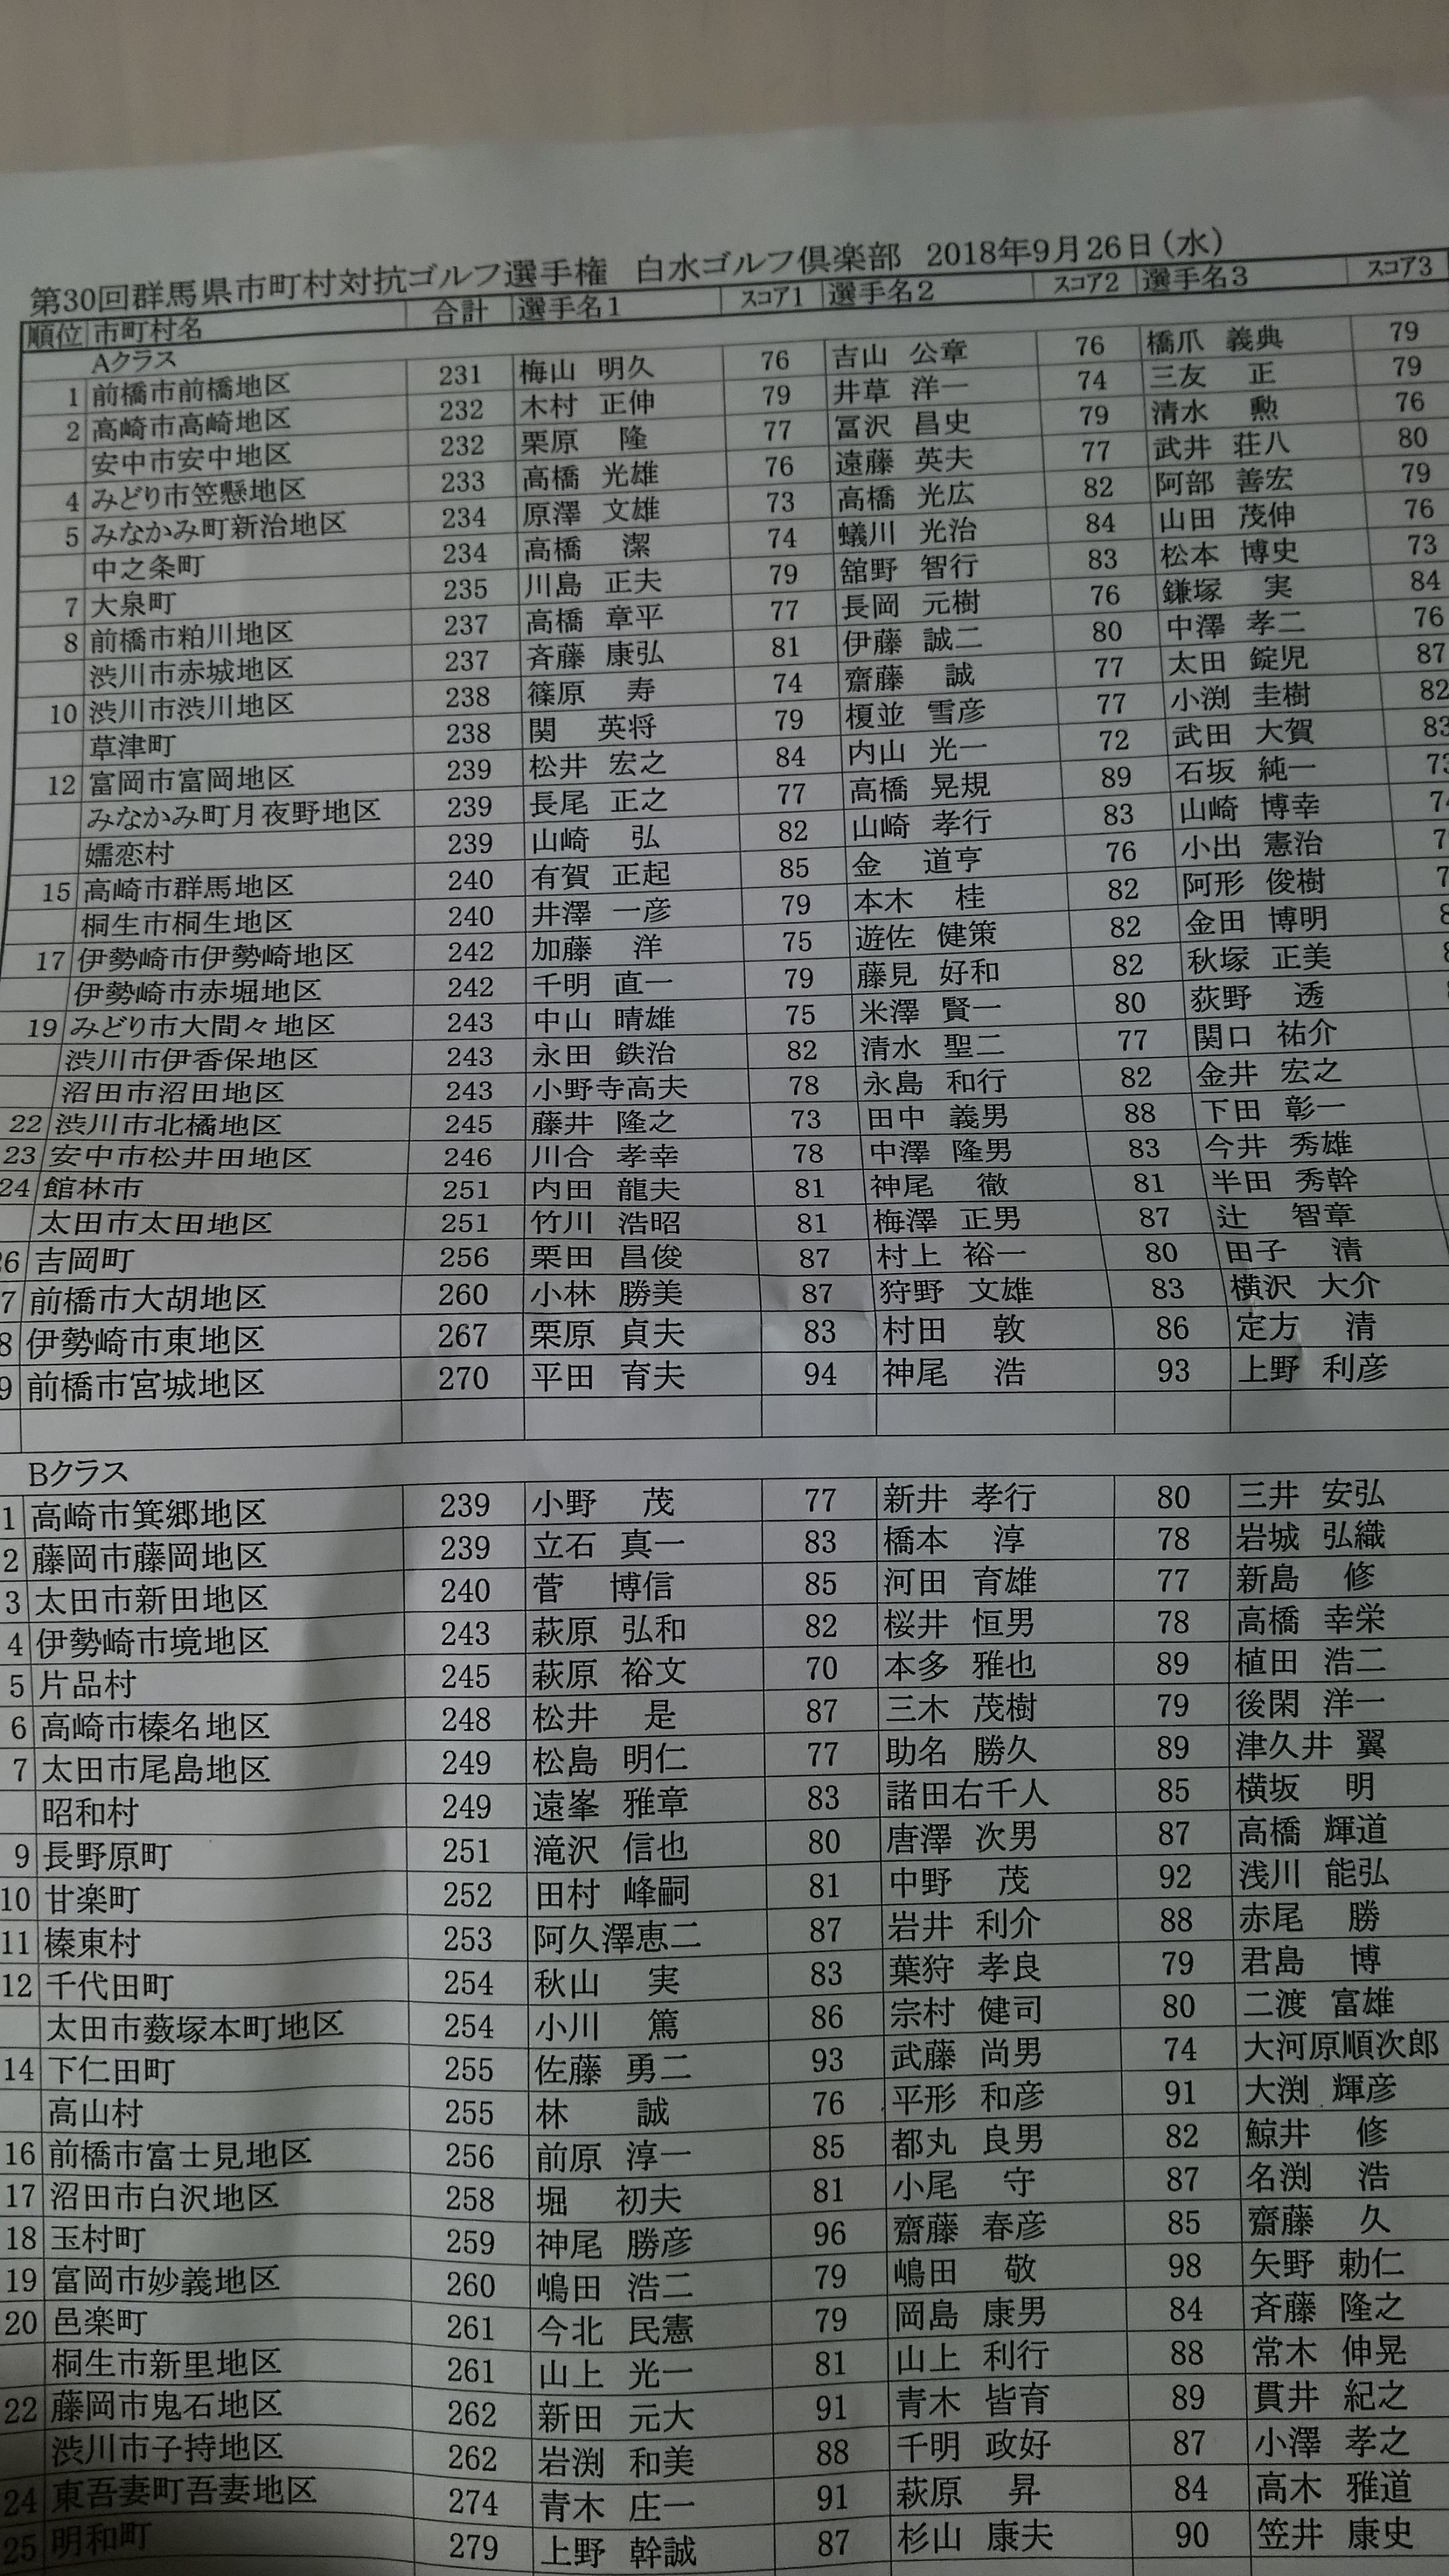 第30回群馬県市町村対抗ゴルフ選手権 白水ゴルフ倶楽部 2018年9月26日(水)
順位 市町村名 合計 選手名1 スコア1 選手名2 スコア2 選手名3 スコア3
Aクラス
1 前橋市前橋地区 231 梅山 明久 76 吉山 公章 76 橋爪 義典 79
2 高崎市高崎地区 232 木村 正伸 79 井草 洋一 74 三友 正 79
安中市安中地区 232 栗原 隆 77 冨沢 昌史 79 清水 勲 76
4 みどり市笠懸地区 233 高橋 光雄 76 遠藤 英夫 77 武井 荘八 80
5 みなかみ町新治地区 234 原澤 文雄 73 高橋 光広 82 阿部 善宏 79
中之条町 234 高橋 潔 74 蟻川 光治 84 山田 茂伸 76
7 大泉町 235 川島 正夫 79 舘野 智行 83 松本 博史 73
8 前橋市粕川地区 237 高橋 章平 77 長岡 元樹 76 鎌塚 実 84
渋川市赤城地区 237 斉藤 康弘 81 伊藤 誠二 80 中澤 孝二 76
10 渋川市渋川地区 238 篠原 寿 74 齋藤 誠 77 太田 錠児 87
草津町 238 関 英将 79 榎並 雪彦 77 小渕 圭樹 82
12 富岡市富岡地区 239 松井 宏之 84 内山 光一 72 武田 大賀 83
みなかみ町月夜野地区 239 長尾 正之 77 高橋 晃規 89 石坂 純一 73
嬬恋村 239 山崎 弘 82 山崎 孝行 83 山崎 博幸 74
15 高崎市群馬地区 240 有賀 正起 85 金 道亨 76 小出 憲治 7
桐生市桐生地区 240 井澤 一彦 79 本木 桂 82 阿形 俊樹 7
17 伊勢崎市伊勢崎地区 242 加藤 洋 75 遊佐 健策 82 金田 博明 8
伊勢崎市赤堀地区 242 千明 直一 79 藤見 好和 82 秋塚 正美 8
19 みどり市大間々地区 243 中山 晴雄 75 米澤 賢一 80 荻野 透
渋川市伊香保地区 243 永田 鉄治 82 清水 聖二 77 関口 祐介
沼田市沼田地区 243 小野寺高夫 78 永島 和行 82 金井 宏之
22 渋川市北橘地区 245 藤井 隆之 73 田中 義男 88 下田 彰一
23 安中市松井田地区 246 川合 孝幸 78 中澤 隆男 83 今井 秀雄
24 館林市 251 内田 龍夫 81 神尾 徹 81 半田 秀幹
太田市太田地区 251 竹川 浩昭 81 梅澤 正男 87 辻 智章
26 吉岡町 256 栗田 昌俊 87 村上 裕一 80 田子 清
7 前橋市大胡地区 260 小林 勝美 87 狩野 文雄 83 横沢 大介
8 伊勢崎市東地区 267 栗原 貞夫 83 村田 敦 86 定方 清
9 前橋市宮城地区 270 平田 育夫 94 神尾 浩 93 上野 利彦
Bクラス
1 高崎市箕郷地区 239 小野 茂 77 新井 孝行 80 三井 安弘
2 藤岡市藤岡地区 239 立石 真一 83 橋本 淳 78 岩城 弘織
3 太田市新田地区 240 菅 博信 85 河田 育雄 77 新島 修
4 伊勢崎市境地区 243 萩原 弘和 82 桜井 恒男 78 高橋 幸栄
5 片品村 245 萩原 裕文 70 本多 雅也 89 植田 浩二
6 高崎市榛名地区 248 松井 是 87 三木 茂樹 79 後閑 洋一
7 太田市尾島地区 249 松島 明仁 77 助名 勝久 89 津久井 翼
昭和村 249 遠峯 雅章 83 諸田右千人 85 横坂 明
9 長野原町 251 滝沢 信也 80 唐澤 次男 87 高橋 輝道
10 甘楽町 252 田村 峰嗣 81 中野 茂 92 浅川 能弘
11 榛東村 253 阿久澤恵二 87 岩井 利介 88 赤尾 勝
12 千代田町 254 秋山 実 83 葉狩 孝良 79 君島 博
太田市薮塚本町地区 254 小川 篤 86 宗村 健司 80 二渡 富雄
14 下仁田町 255 佐藤 勇二 93 武藤 尚男 74 大河原順次郎
高山村 255 林 誠 76 平形 和彦 91 大渕 輝彦
16 前橋市富士見地区 256 前原 淳一 85 都丸 良男 82 鯨井 修
17 沼田市白沢地区 258 堀 初夫 81 小尾 守 87 名渕 浩
18 玉村町 259 神尾 勝彦 96 齋藤 春彦 85 齋藤 久
19 富岡市妙義地区 260 嶋田 浩二 79 嶋田 敬 98 矢野 勅仁
20 邑楽町 261 今北 民憲 79 岡島 康男 84 斉藤 隆之
桐生市新里地区 261 山上 光一 81 山上 利行 88 常木 伸晃
22 藤岡市鬼石地区 262 新田 元大 91 青木 皆育 89 貫井 紀之
渋川市子持地区 262 岩渕 和美 88 千明 政好 87 小澤 孝之
24 東吾妻町吾妻地区 274 青木 庄一 91 萩原 昇 84 高木 雅道
25 明和町 279 上野 幹誠 87 杉山 康夫 90 笠井 康史